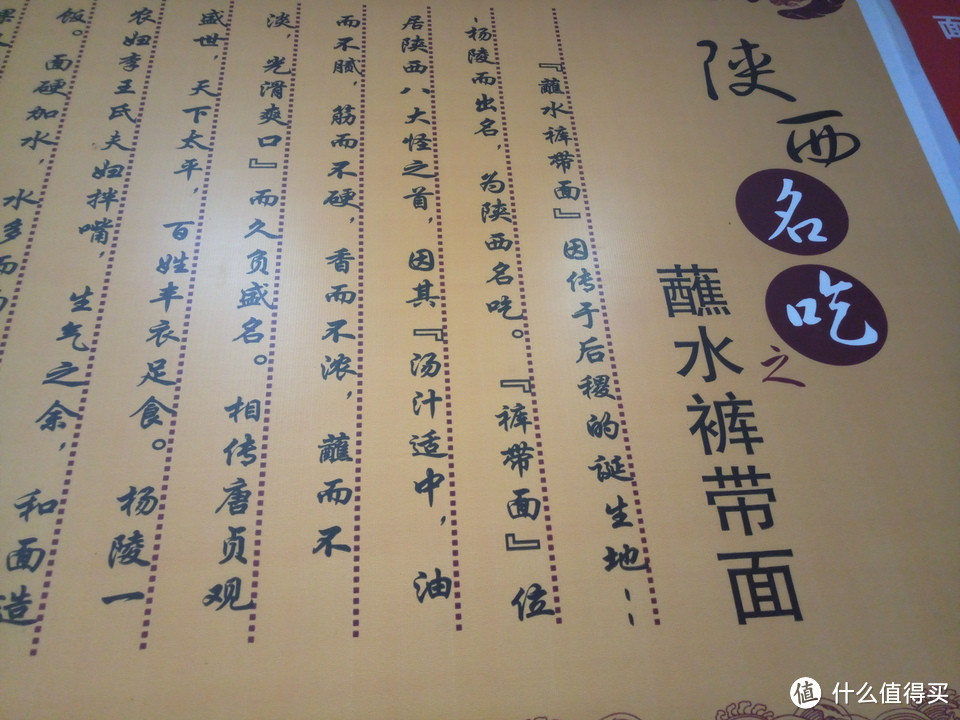 陕西名吃之
蘸水裤带面
『蘸水裤带面』因传于后稷的诞生地--
-杨陵而出名，为陕西名吃。『裤带面』位
居陕西八大怪之首，因其『汤汁适中，油
而不腻，筋而不硬，香而不浓，蘸而不
淡，光滑爽口』而久负盛名。相传唐贞观
盛世，天下太平，百姓丰衣足食。杨陵一
农妇李王氏夫妇拌嘴，生气之余，和面造
饭。面硬加水，水多而
面
值 什么值得买